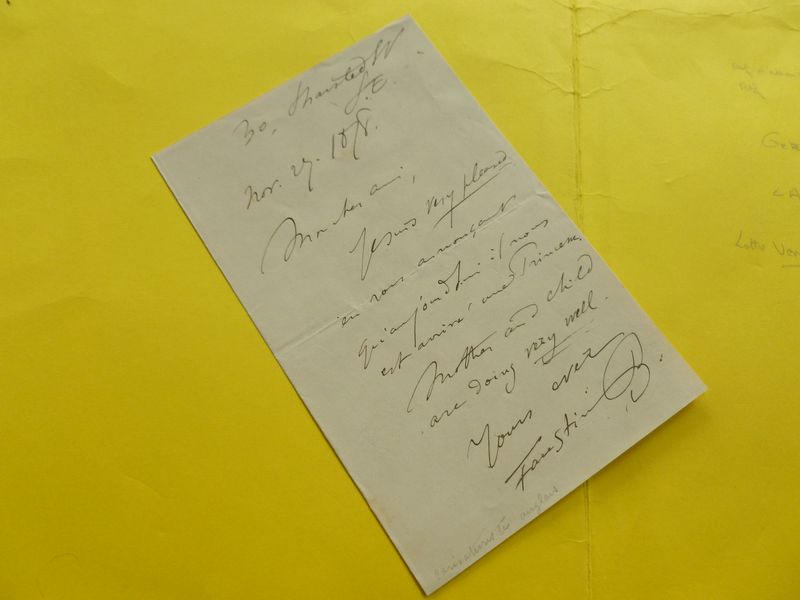 30,
S.E.
Nov. 27. 187.
Mon cher ami,
Je suis very pleased
en vous annonçant
qu'aujourd'hui il nous
est arrivé une Princesse,
Mother and child
are doing very well.
Yours ever
Faustin B.
caricaturiste anglais
Lotto